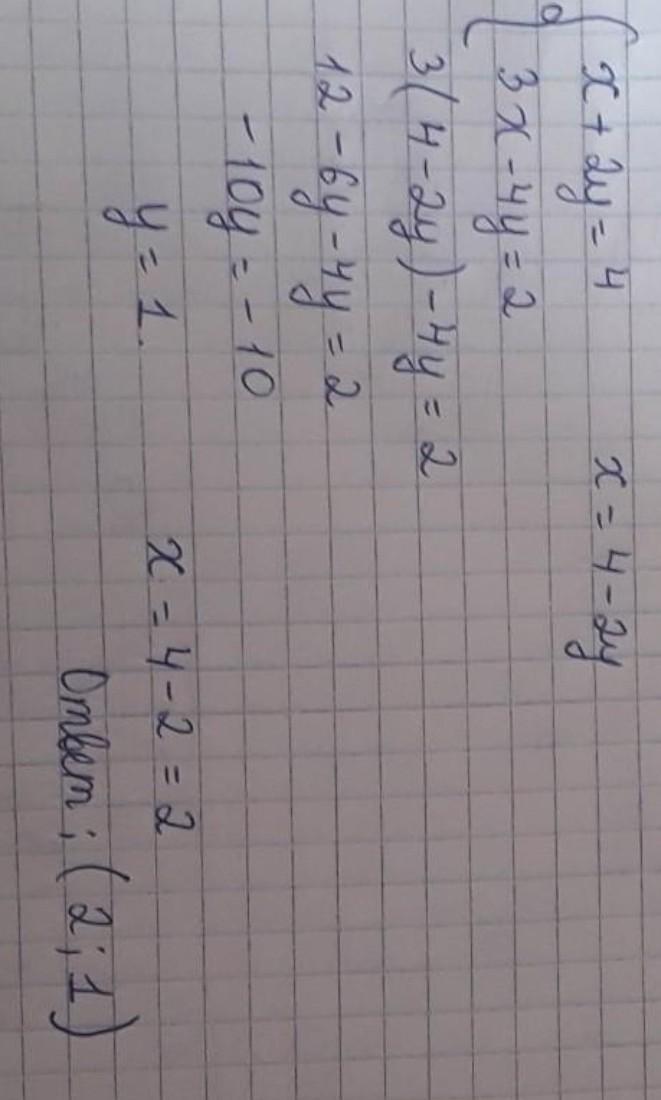 x + 2y = 4 x = 4 - 2y
3x - 4y = 2
3(4 - 2y) - 4y = 2
12 - 6y - 4y = 2
-10y = -10
y = 1. x = 4 - 2 = 2
Ответ: (2; 1)